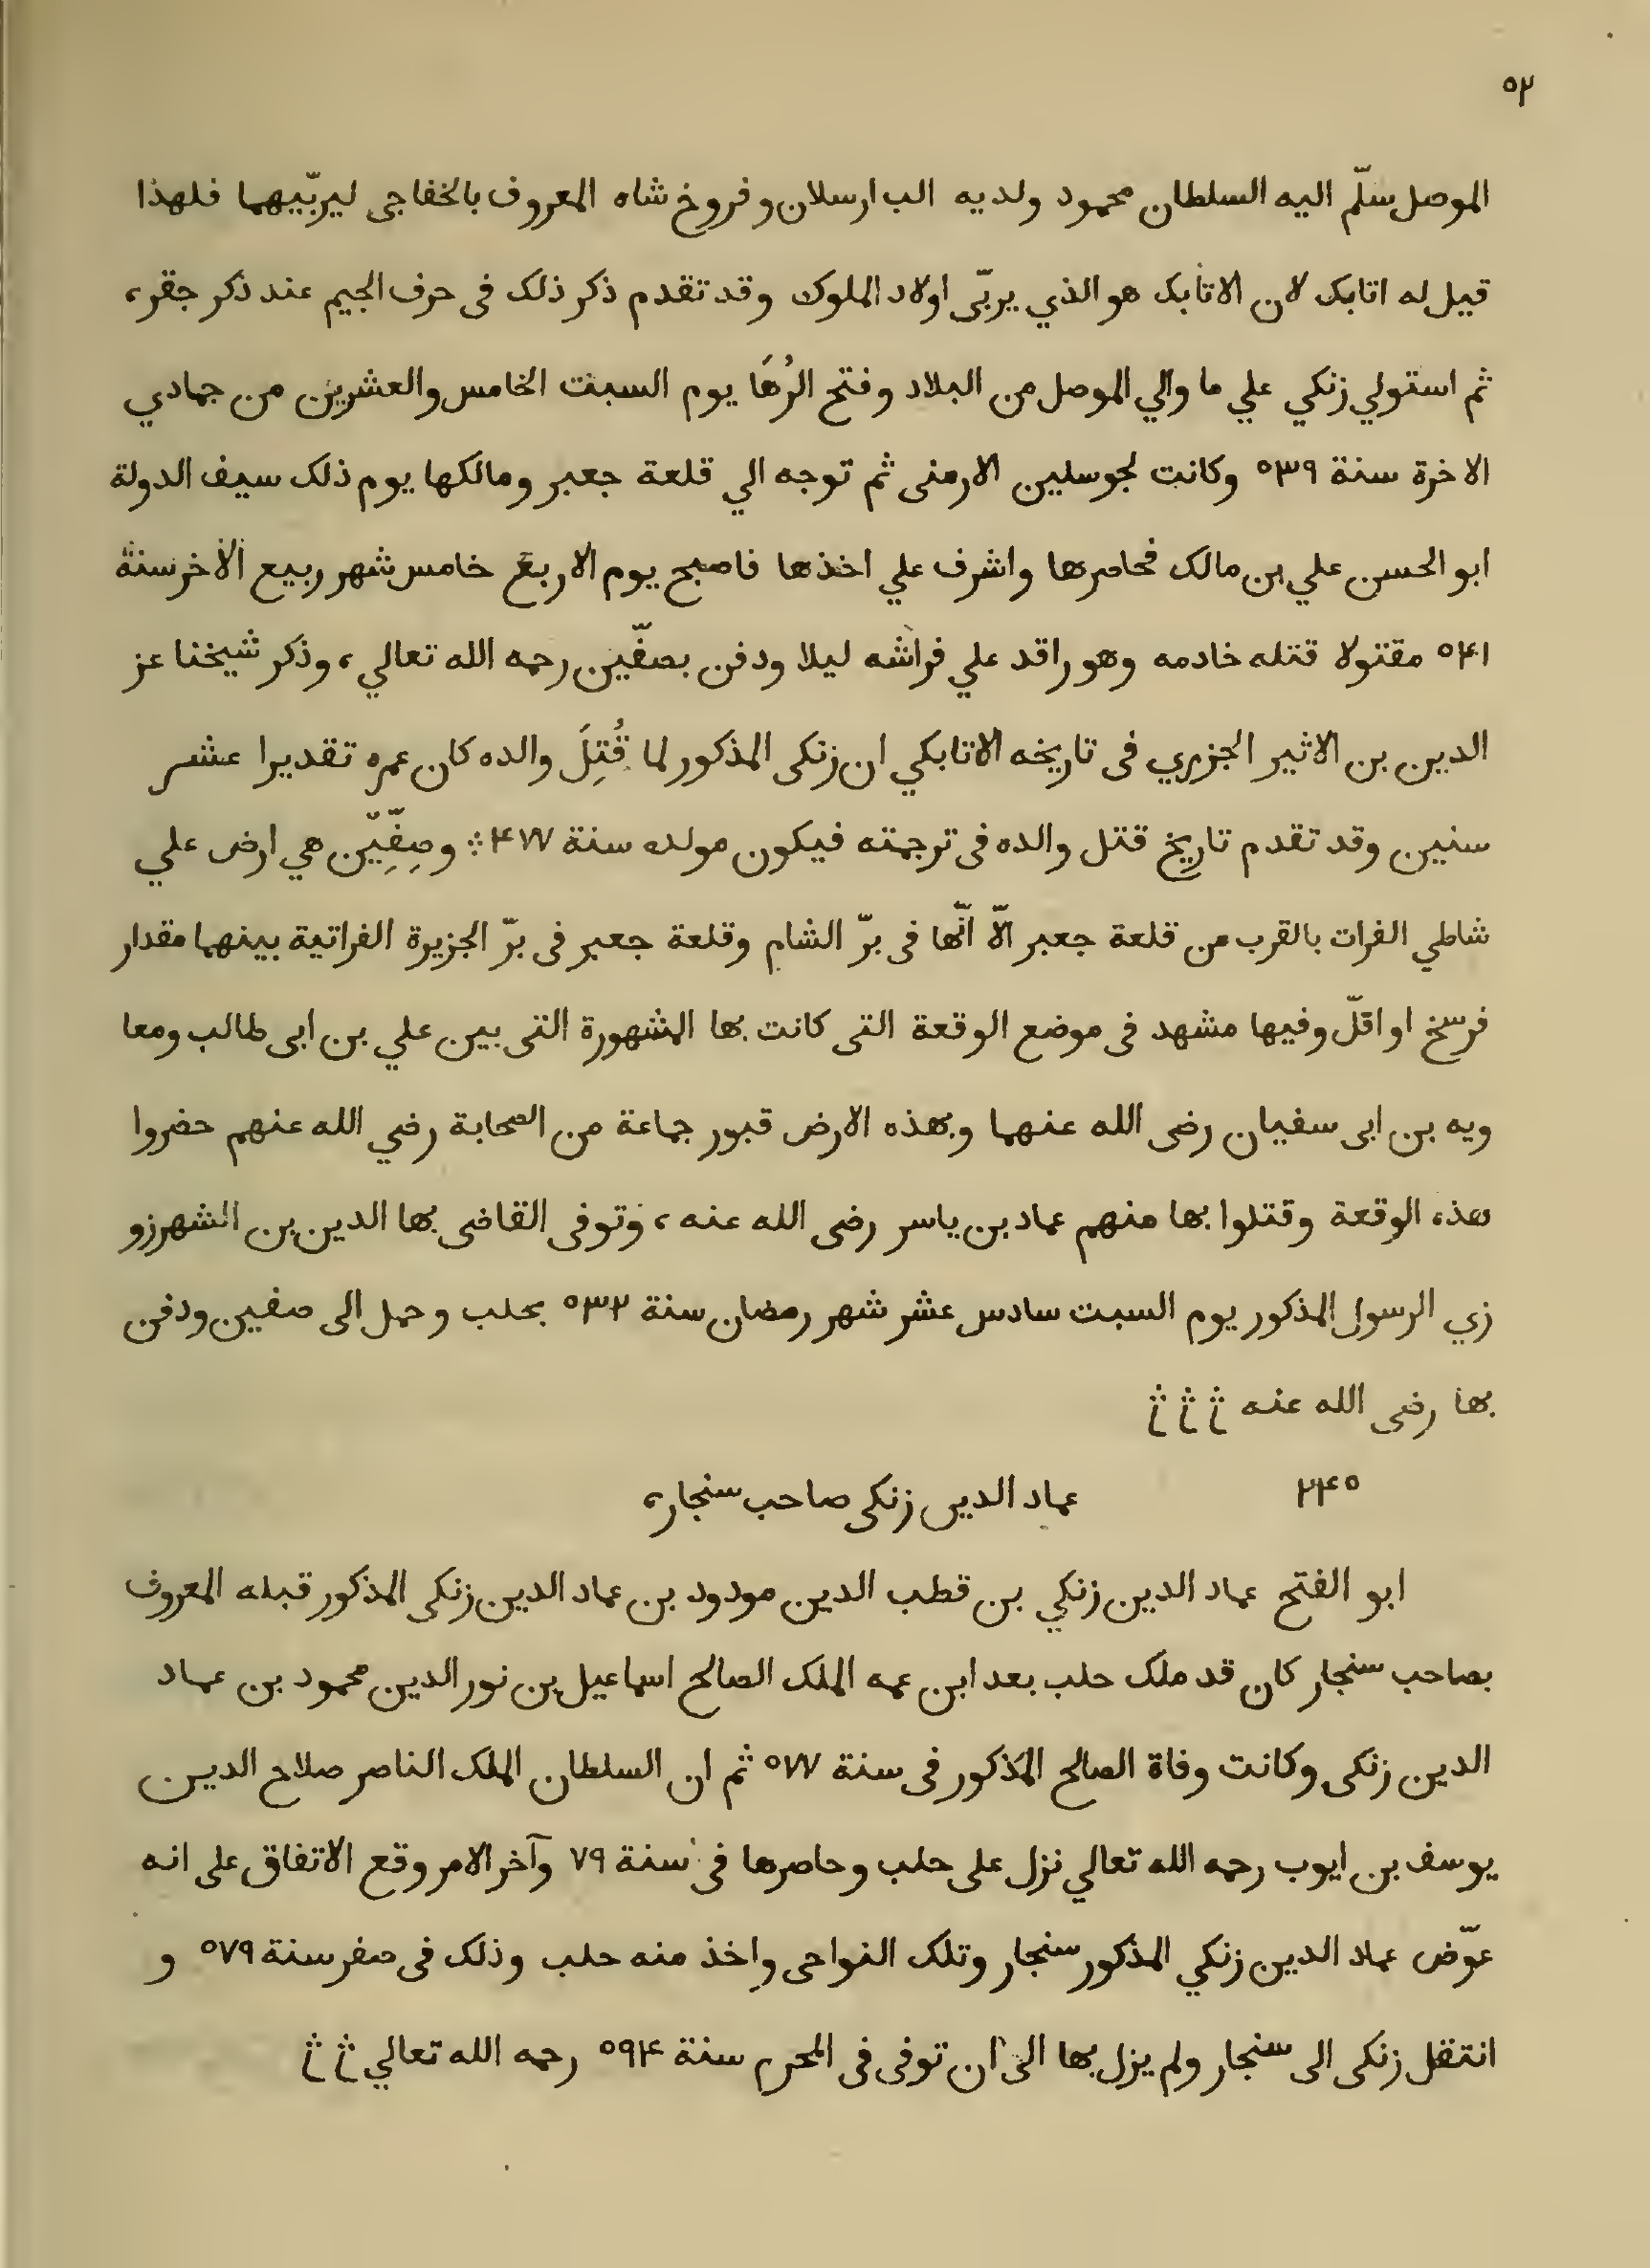 ٥٢
الموصل سلّم اليه السلطان محمود ولديه الب ارسلان وفروخ شاه المعروف بالخفاجى ليربّيهما فلهذا
قيل له اتابك لان الاتابك هو الذي يربّى اولاد الملوك وقد تقدم ذكر ذلك فى حرف الجيم عند ذكر جقر،
ثم استولي زنكي علي ما والي الموصل من البلاد وفتح الرُهَا يوم السبت الخامس والعشرين من جمادي
الاخرة سنة ٥٣٩ وكانت لجوسلين الارمنى ثم توجه الي قلعة جعبر ومالكها يوم ذلك سيف الدولة
ابو الحسن علي بن مالك فحاصرها واشرف علي اخذها فاصبح يوم الاربعَ خامس شهر ربيع الأخر سنة
٥٤١ مقتولا قتله خادمه وهو راقد علي فراشه ليلا ودفن بصفّين رحمه الله تعالي، وذكر شيخنا عز
الدين بن الاثير الجزري فى تاريخه الاتابكي ان زنكى المذكور لما قُتِلَ والده كان عمره تقديرا عشر
سنين وقد تقدم تاريخ قتل والده فى ترجمته فيكون مولده سنة ٤٧٧ ؞ وصِفِّيّن هي ارض علي
شاطي الفرات بالقرب من قلعة جعبر الّا انّها فى برّ الشام وقلعة جعبر فى برّ الجزيرة الفراتية بينهما مقدار
فرسخ او اقلّ وفيها مشهد فى موضع الوقعة التى كانت بها المشهورة التى بين علي بن ابى طالب ومعا
ويه بن ابى سفيان رضى الله عنهما وبهذه الارض قبور جماعة من الصحابة رضي الله عنهم حضروا
هذه الوقعة وقتلوا بها منهم عماد بن ياسر رضى الله عنه، وتوفى القاضى بها الدين بن الشهرزو
زي الرسول المذكور يوم السبت سادس عشر شهر رمضان سنة ٥٣٢ بحلب وحمل الى صفين ودفن
بها رضى الله عنه
٢٤٥ عماد الدين زنكى صاحب سنجار،
ابو الفتح عماد الدين زنكي بن قطب الدين مودود بن عماد الدين زنكى المذكور قبله المعروف
بصاحب سنجار كان قد ملك حلب بعد ابن عمه الملك الصالح اسماعيل بن نور الدين محمود بن عماد
الدين زنكى وكانت وفاة الصالح المذكور فى سنة ٥٧٧ ثم ان السلطان الملك الناصر صلاح الدين
يوسف بن ايوب رحمه الله تعالي نزل على حلب وحاصرها فى سنة ٧٩ وآخر الامر وقع الاتفاق على انه
عوّض عماد الدين زنكي المذكور سنجار وتلك النواحى واخذ منه حلب وذلك فى صفر سنة ٥٧٩ و
انتقل زنكى الى سنجار ولم يزل بها الى ان توفى فى المحرم سنة ٥٩٤ رحمه الله تعالي